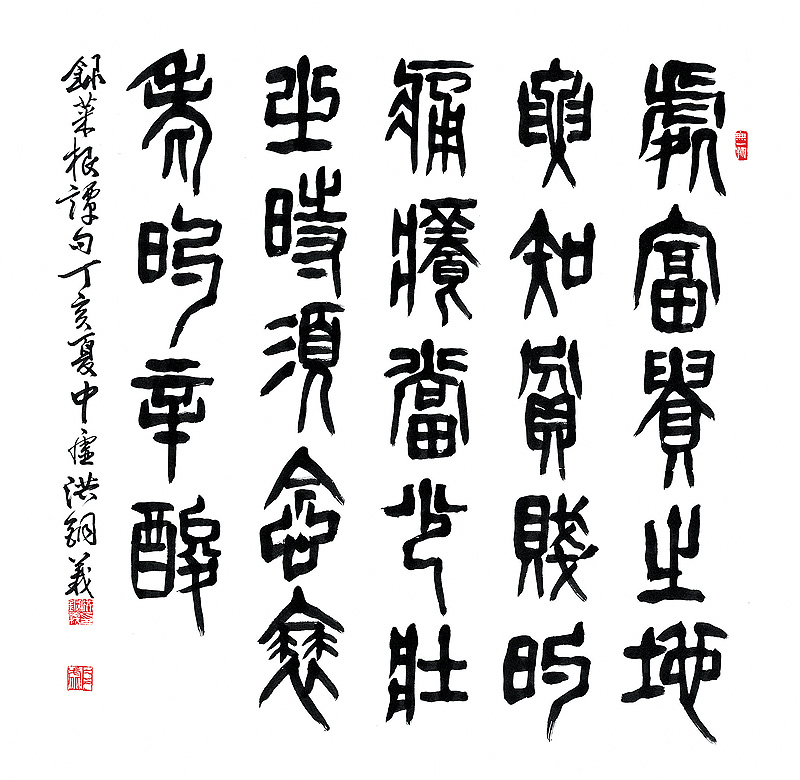 處富貴之地
要知貧賤的
痛癢當少壯
之時須念衰
老的辛酸
録菜根譚句丁亥夏中虛洪義